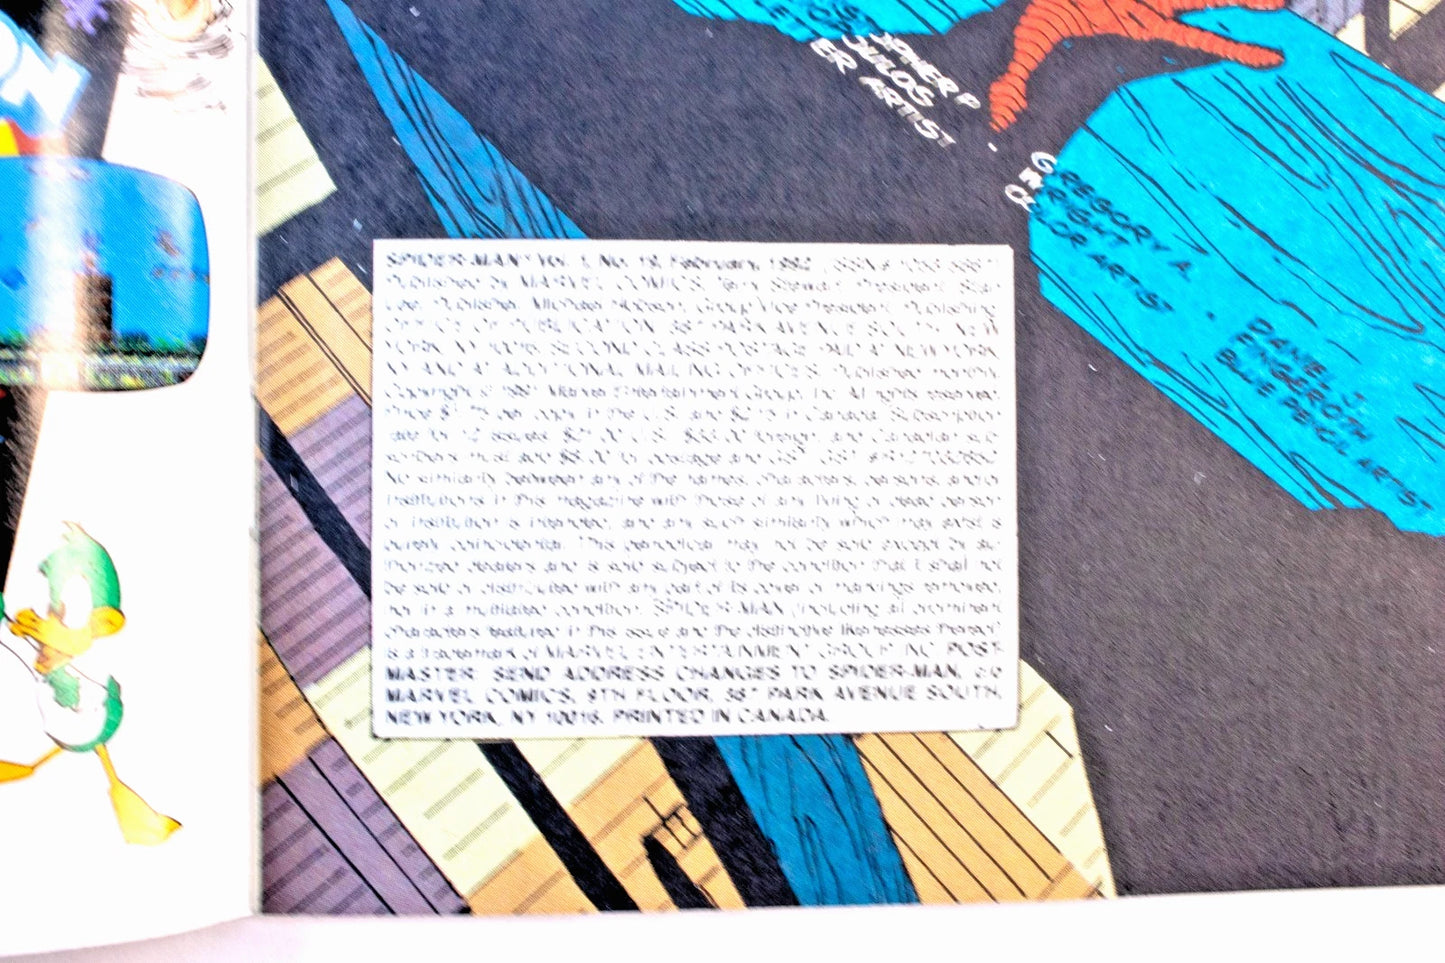 ER ARTIST
GREGORY
WRIGHT
COLOR ARTIST
DANIEL
FINGEROTH
BLUE PENCIL ARTIST
SPIDER-MAN™ Vol. 1, No. 19, February, 1992
Published by MARVEL COMICS, Terry Stewart, President, Stan
Lee, Publisher, Michael Hobson, Group Vice President, Publishing.
OFFICE OF PUBLICATION: 387 PARK AVENUE SOUTH, NEW
YORK, NY 10016. SECOND CLASS POSTAGE PAID AT NEW YORK,
NY AND AT ADDITIONAL MAILING OFFICES. Published monthly.
Copyright © 1991 Marvel Entertainment Group, Inc. All rights reserved.
Price $1.75 per copy in the U.S. and in Canada. Subscription
rate for 12 issues: U.S. foreign, and Canadian sub-
scribers must add $8.00 for postage and GST. GST
No similarity between any of the names, characters, persons, and/or
institutions in this magazine with those of any living or dead person
or institution is intended, and any such similarity which may exist is
purely coincidental. This periodical may not be sold except by au-
thorized dealers and is sold subject to the condition that it shall not
be sold or distributed with any part of its cover or markings removed,
nor in a mutilated condition. SPIDER-MAN (including all prominent
characters featured in this issue and the distinctive likenesses thereof)
is a trademark of MARVEL ENTERTAINMENT GROUP, INC. POST-
MASTER: SEND ADDRESS CHANGES TO SPIDER-MAN, c/o
MARVEL COMICS, 9TH FLOOR, 387 PARK AVENUE SOUTH,
NEW YORK, NY 10016. PRINTED IN CANADA.